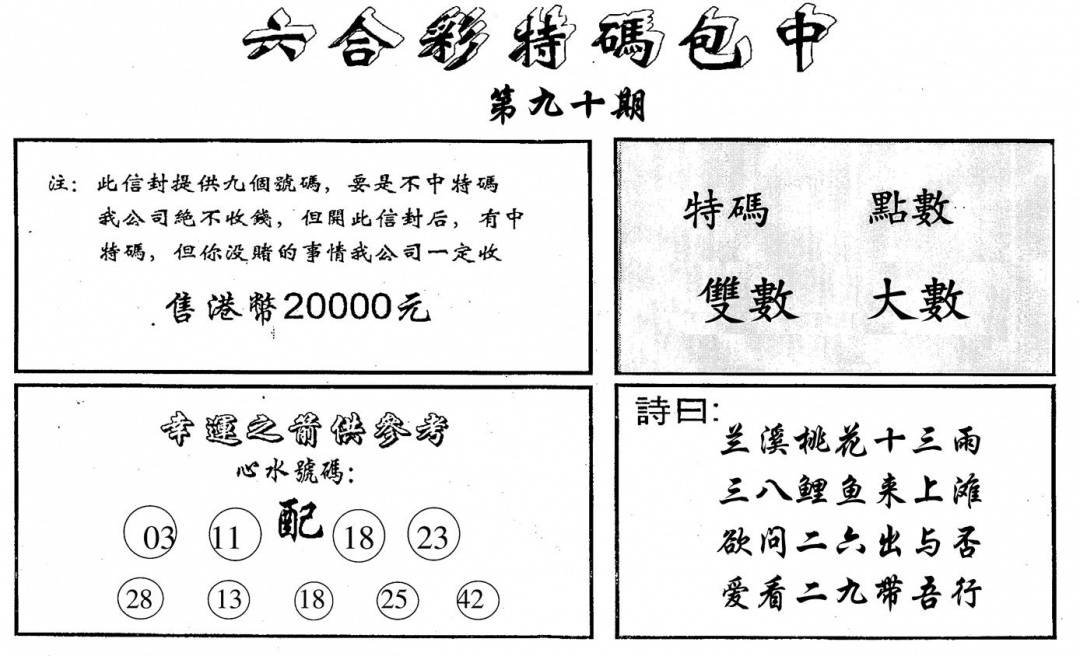 六合彩特碼包中
第九十期
注：此信封提供九個號碼，要是不中特碼
我公司絕不收錢，但開此信封后，有中
特碼，但你没賭的事情我公司一定收
售港幣20000元
特碼 點數
雙數 大數
幸運之箭供參考
心水號碼：
03 11 配 18 23
28 13 18 25 42
詩曰：
兰溪桃花十三雨
三八鲤鱼来上滩
欲问二六出与否
爱看二九帶吾行